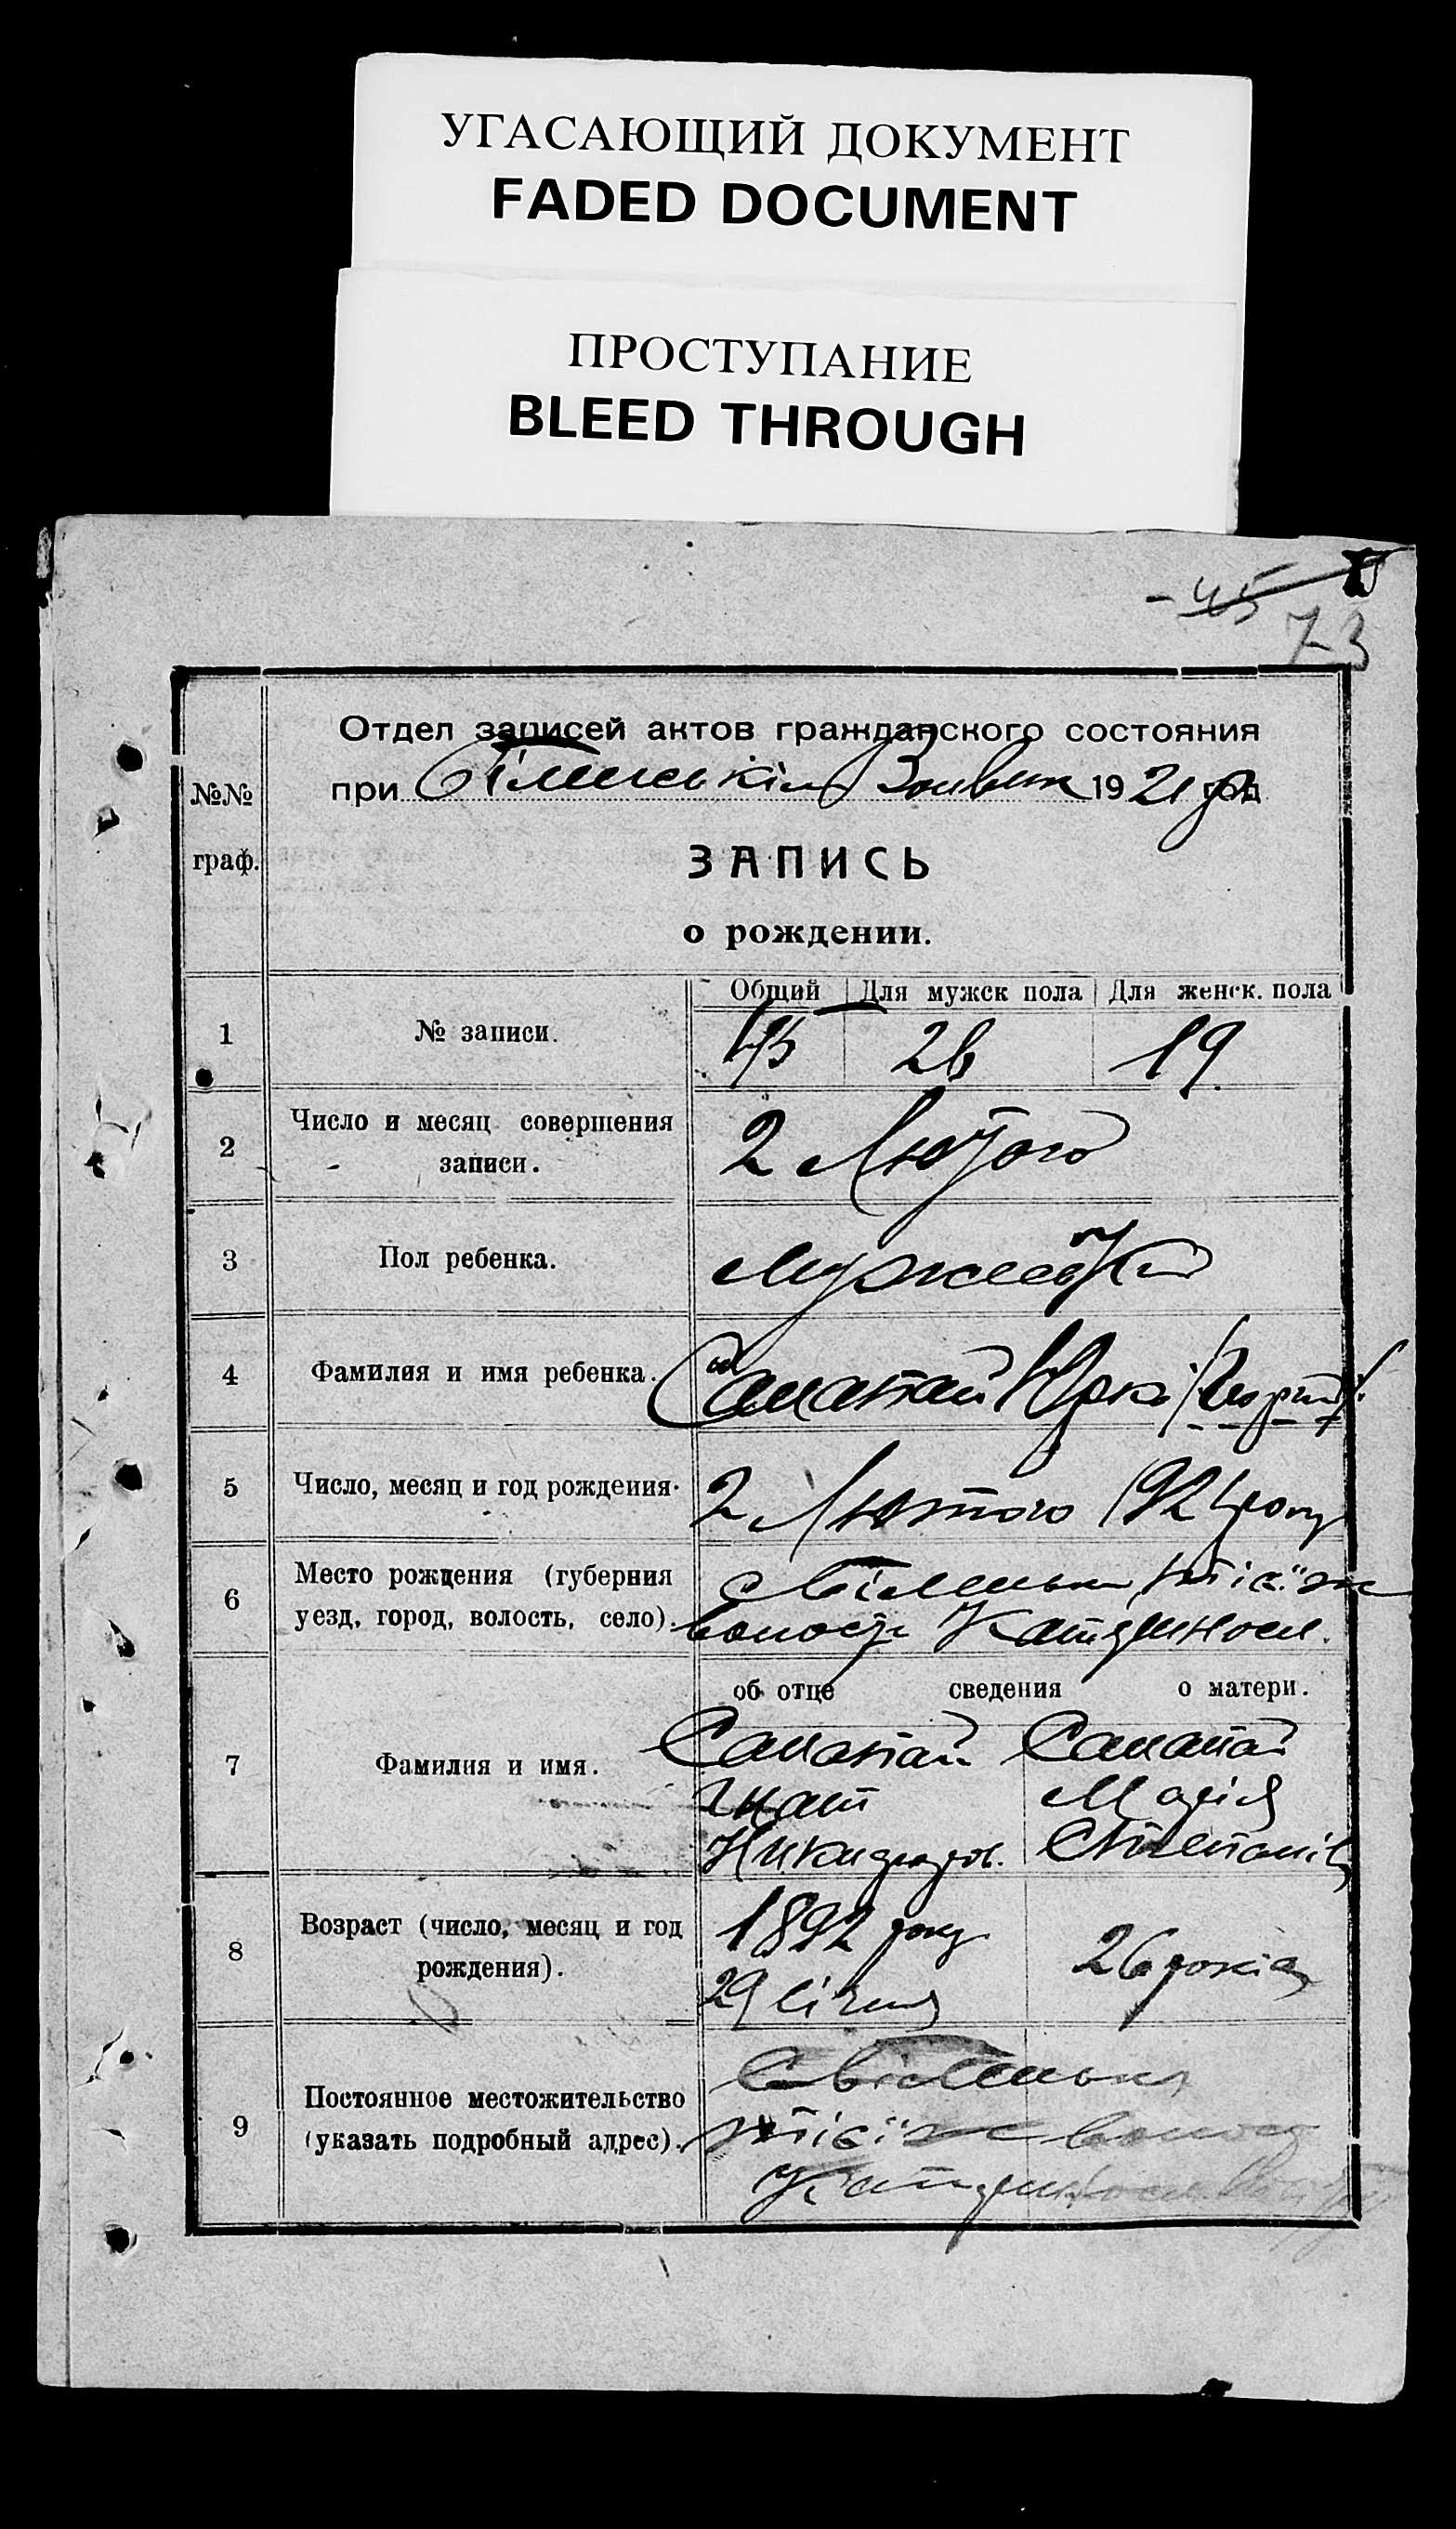 УГАСАЮЩИЙ ДОКУМЕНТ
FADED DOCUMENT
ПРОСТУПАНИЕ
BLEED THROUGH
- 45
73
Отдел записей актов гражданского состояния
при 1921 р. год
№№
граф.
ЗАПИСЬ
о рождении.
Общий Для мужск пола Для женск. пола
1 № записи. 45 26 19
2 Число и месяц совершения
записи. 2 Лютого
3 Пол ребенка.
4 Фамилия и имя ребенка. Самотай Юрко
5 Число, месяц и год рождения. 2 Лютого 1921 року
6 Место рождения (губерния
уезд, город, волость, село). волости
об отце сведения о матери.
Самотай Самотай
7 Фамилия и имя. Гнат Марія
Степанів
8 Возраст (число, месяц и год 1892 року 26 років
рождения). 29 січня
9 Постоянное местожительство
(указать подробный адрес).